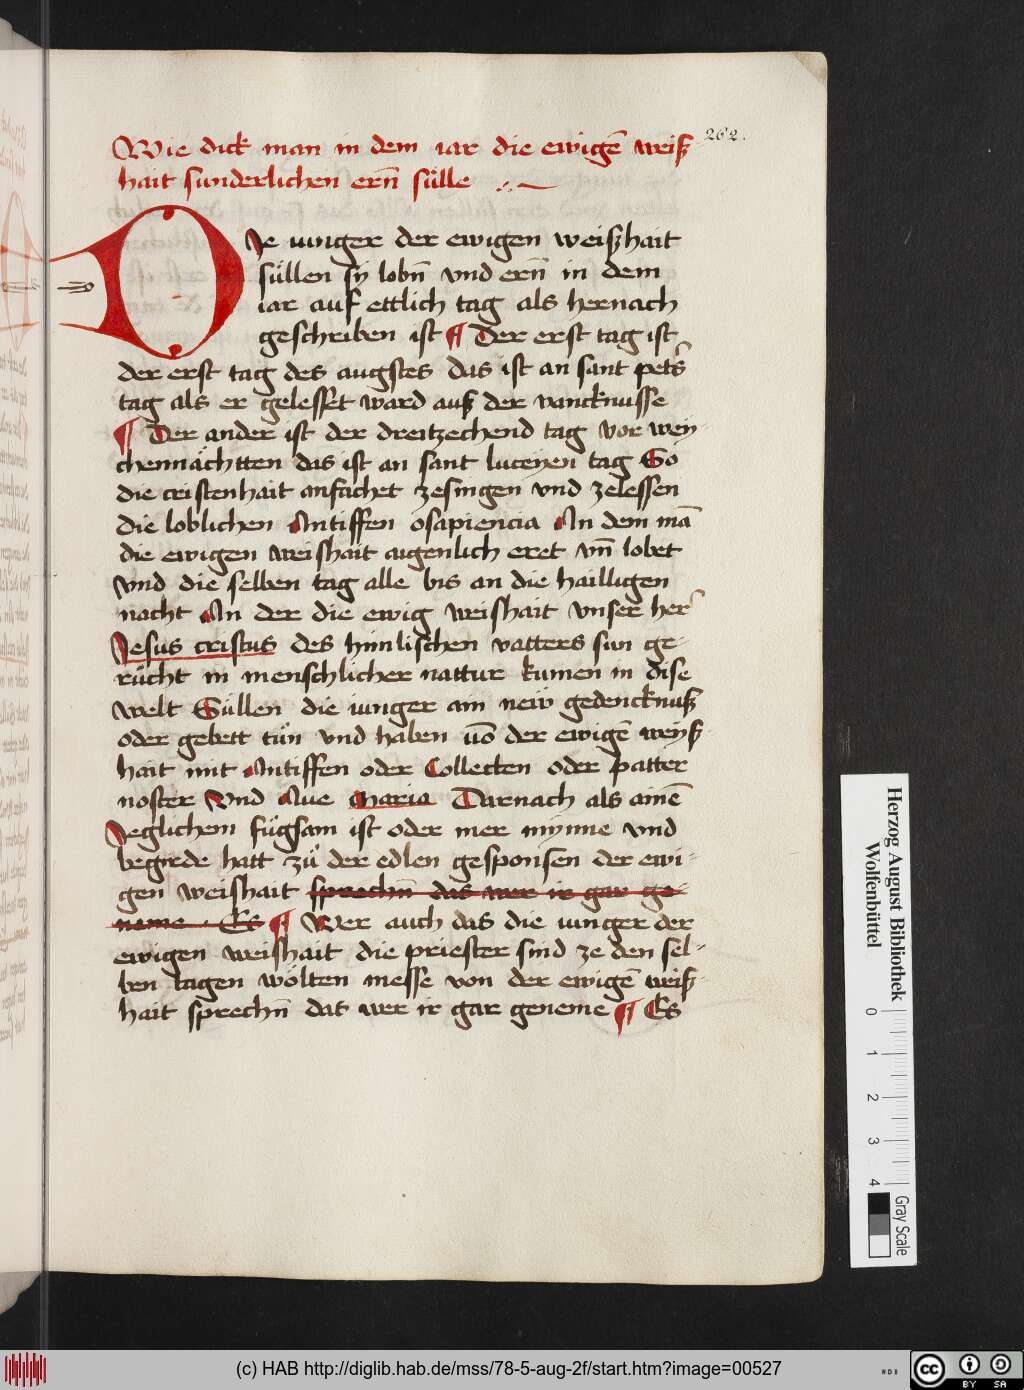 Wie dick man in dem iar die ewigē weiß
262.
hait sunderlichen ern̄ sülle
Die iunger der ewigen weißhait
süllen sÿ lobn̄ vnd ern̄ in dem
iar auf ettlich tag als hernach
geschriben ist ¶ Der erst tag ist
der erst tag des augstes das ist an sant pets̄
tag als er gelesset ward auß der vancknusse
¶ Der ander ist der dreitzechend tag vor wey-
chennächtten das ist an sant luceyen tag So
die cristenhait anfachet zesingen vnd zelessen
die loblichen Antiffen osapiencia An dem mā
die ewigen weishait aigenlich eret vn̄ lobet
vnd die selben tag alle bis an die hailligen
nacht An der die ewig weishait vnser her̄
Jesus cristus des himlischen vatters sun ge-
rücht in menschlicher nattur kumen in dise
welt Süllen die iunger ain neiw gedencknuß
oder gebett tün vnd haben vō der ewigē weyß
hait mit Antiffen oder Collecten oder patter
noster Vnd Aue Maria Darnach als ainē
Jeglichem fügsam ist oder mer mynne vnd
begirde hatt zů der edlen gesponsen der ewi-
gen weishait sprechn̄ das wer ir gar ge-
neme Es ¶ Wer auch das die iunger der
ewigen weishait die priester sind ze den sel-
ben tagen wölten messe von der ewigē weiß-
hait sprechn̄ dat wer ir gar geneme ¶ Es
Herzog August Bibliothek
Wolfenbüttel
0 1 2 3 4
Gray Scale
(c) HAB http://diglib.hab.de/mss/78-5-aug-2f/start.htm?image=00527
WDB
cc
BY SA